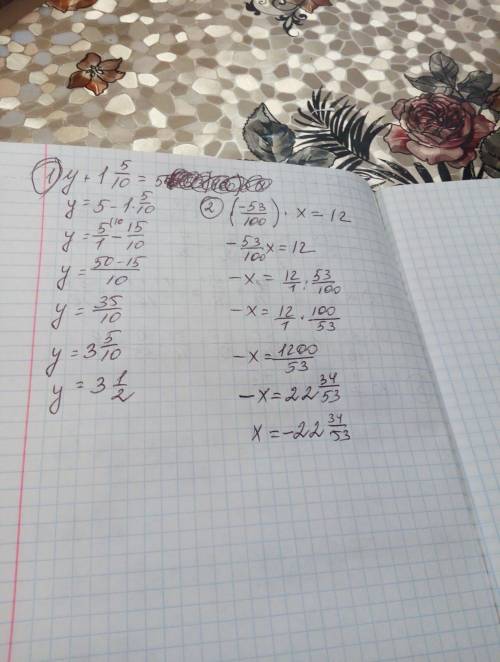 ① y + 1 5/10 = 5
y = 5 - 1 5/10
y = 5/1 (10 - 15/10
y = 50-15/10
y = 35/10
y = 3 5/10
y = 3 1/2
② (-53/100) · x = 12
- 53/100 x = 12
- x = 12/1 : 53/100
- x = 12/1 · 100/53
- x = 1200/53
- x = 22 34/53
x = -22 34/53